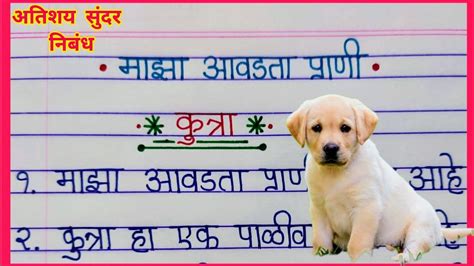 अतिशय सुंदर
निबंध
• माझा आवडता प्राणी •
* कुत्रा *
१. माझा आवडता आहे
२. कुत्रा हा एक